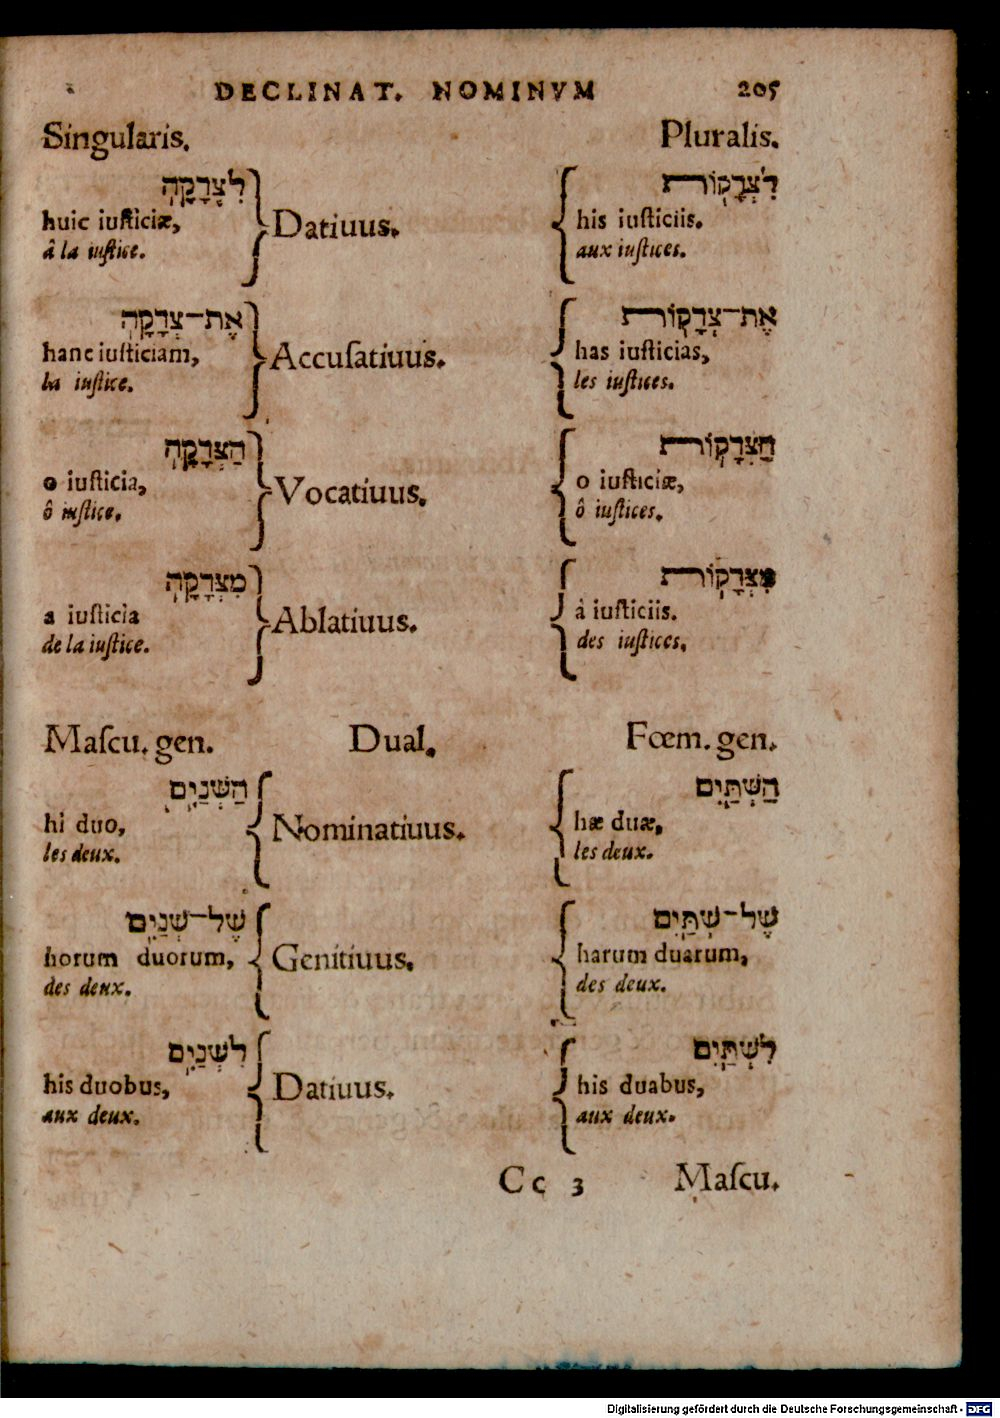 DECLINAT. NOMINVM 205
Singularis. Pluralis.
לִצְדָקָה
huic iuſticiæ,
â la iuſtice.
Datiuus.
לִצְדָקוֹת
his iuſticiis.
aux iuſtices.
אֶת־צְדָקָה
hanc iuſticiam,
la iuſtice.
Accuſatiuus.
אֶת־צְדָקוֹת
has iuſticias,
les iuſtices.
הַצְּדָקָה
o iuſticia,
ô iuſtice.
Vocatiuus.
הַצְּדָקוֹת
o iuſticiæ,
ô iuſtices.
מִצְּדָקָה
a iuſticia
de la iuſtice.
Ablatiuus.
מִצְּדָקוֹת
à iuſticiis.
des iuſtices.
Maſcu. gen. Dual. Fœm. gen.
הַשְּׁנַיִם
hi duo,
les deux.
Nominatiuus.
הַשְּׁתַּיִם
hæ duæ,
les deux.
שֶׁל־שְׁנַיִם
horum duorum,
des deux.
Genitiuus.
שֶׁל־שְׁתַּיִם
harum duarum,
des deux.
לִשְׁנַיִם
his duobus,
aux deux.
Datiuus.
לִשְׁתַּיִם
his duabus,
aux deux.
Cc 3 Maſcu.
Digitalisierung gefördert durch die Deutsche Forschungsgemeinschaft - DFG